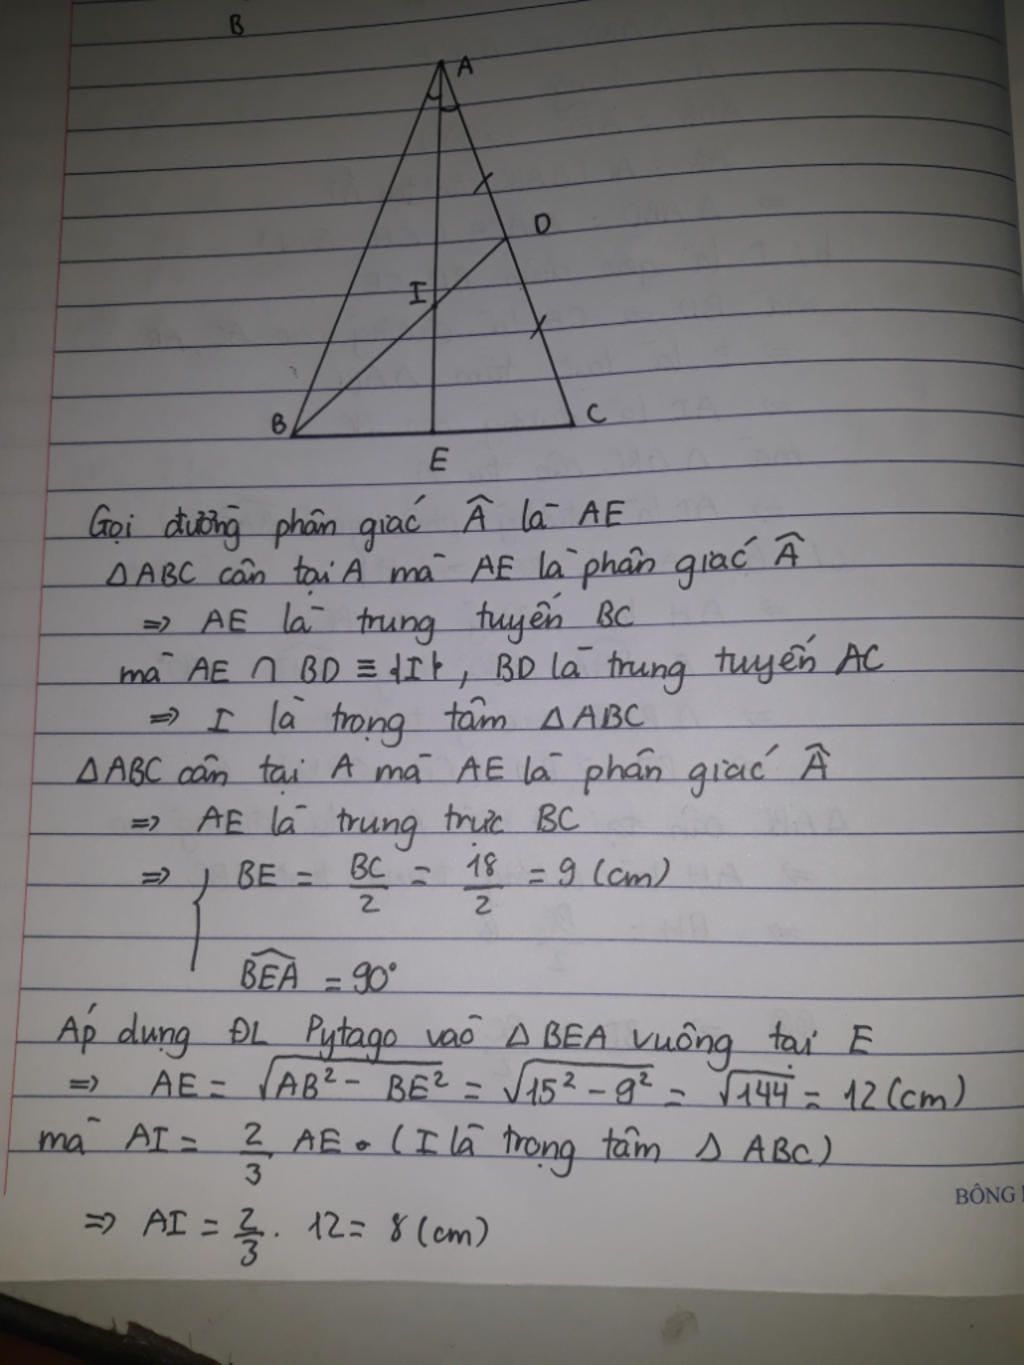 B
A
D
I
B
C
E
Gọi đường phân giác Â là AE
ΔABC cân tại A mà AE là phân giác Â
⇒ AE là trung tuyến BC
mà AE ∩ BD ≡ {I}, BD là trung tuyến AC
⇒ I là trọng tâm ΔABC
ΔABC cân tại A mà AE là phân giác Â
⇒ AE là trung trực BC
⇒ { BE = BC/2 = 18/2 = 9 (cm)
BEA^ = 90°
Áp dụng ĐL Pytago vào ΔBEA vuông tại E
⇒ AE = √(AB² - BE²) = √(15² - 9²) = √144 = 12 (cm)
mà AI = 2/3 AE . (I là trọng tâm Δ ABC)
BÔNG
⇒ AI = 2/3 . 12 = 8 (cm)